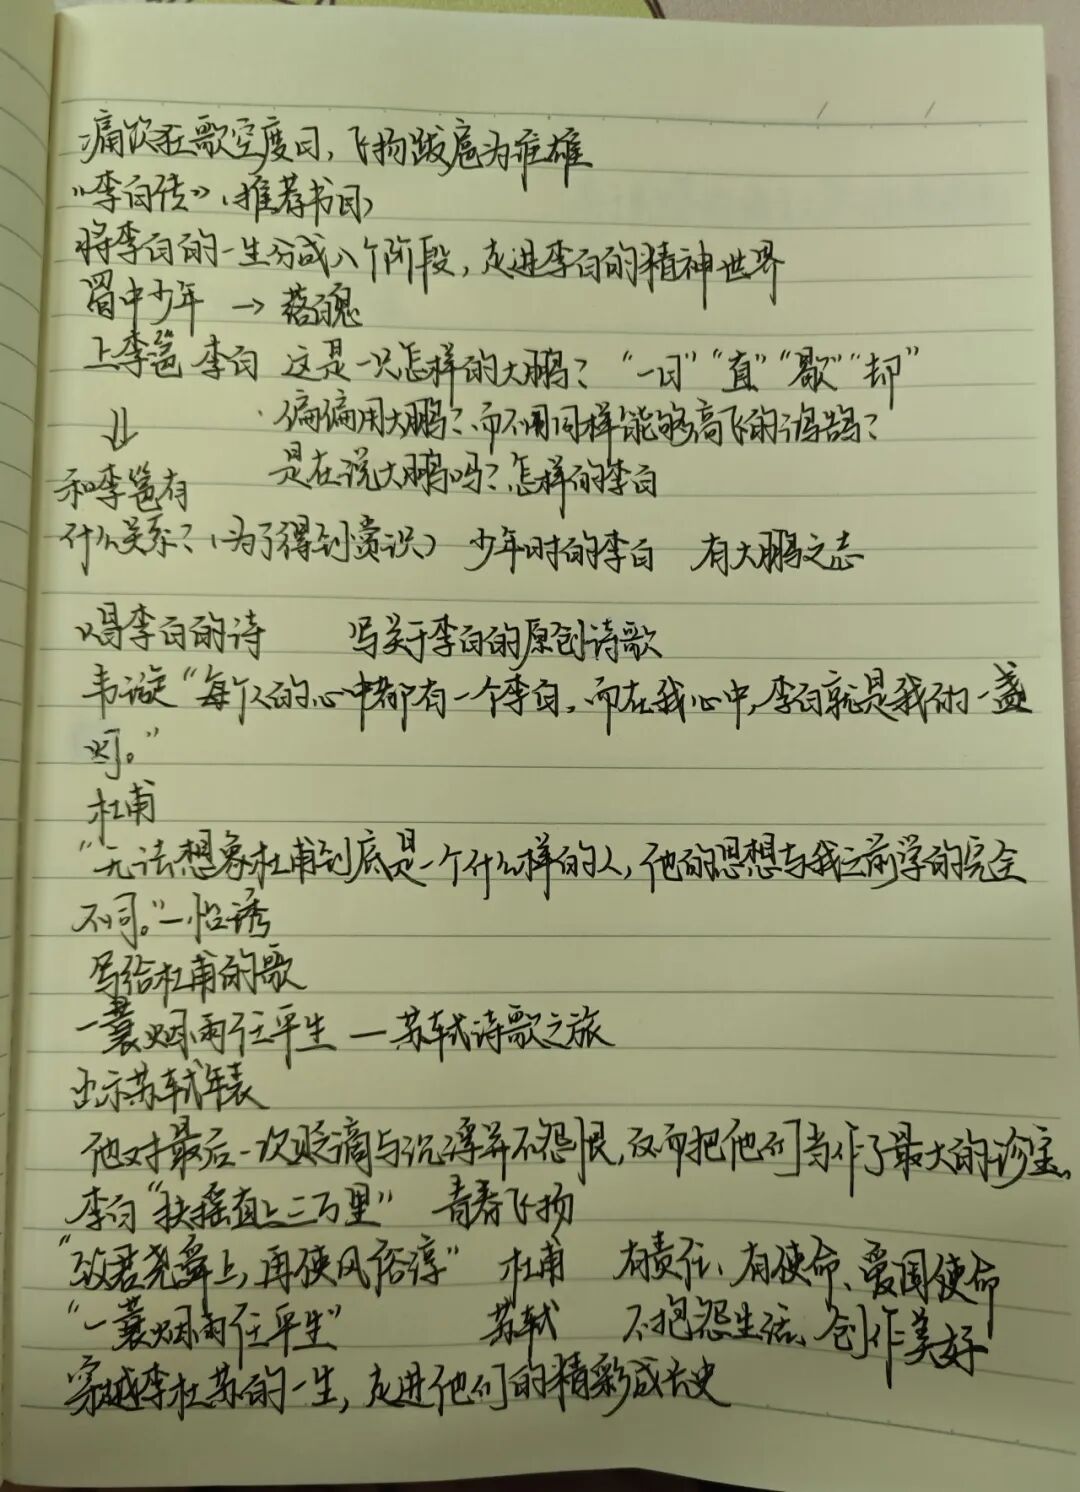 痛饮狂歌空度日，飞扬跋扈为谁雄
《李白传》（推荐书目）
将李白的一生分成八个阶段，走进李白的精神世界
蜀中少年 → 落魄
上李邕 李白 这是一只怎样的大鹏？ “一日”“直”“歇”“却”
偏偏用大鹏？而不用同样能够高飞的鸿鹄？
是在说大鹏吗？怎样的李白
和李邕有
什么关系？（为了得到赏识） 少年时的李白 有大鹏之志
唱李白的诗 写关于李白的原创诗歌
韦璇“每个人的心中都有一个李白，而在我心中，李白就是我的一盏
灯。”
杜甫
“无法想象杜甫到底是一个什么样的人，他的思想与我之前学的完全
不同。”—怡诱
写给杜甫的歌
一蓑烟雨任平生 — 苏轼诗歌之旅
出示苏轼年表
他对最后一次贬谪与沉浮并不怨恨，反而把他们当作了最大的珍宝。
李白“扶摇直上三万里” 青春飞扬
“致君尧舜上，再使风俗淳” 杜甫 有责任、有使命、爱国使命
“一蓑烟雨任平生” 苏轼 不抱怨生活、创作美好
穿越李杜苏的一生，走进他们的精彩成长史